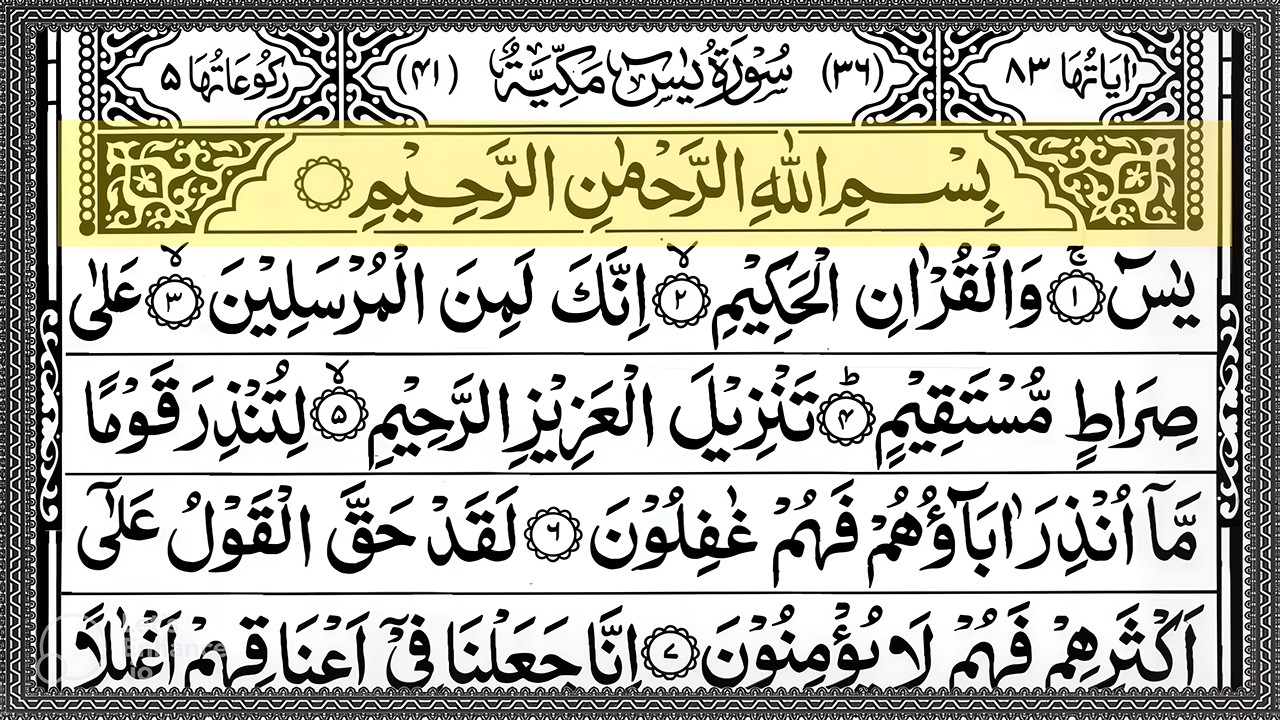 اٰيَاتُهَا ٨٣ (٣٦) سُوْرَةُ يٰسٓ مَكِّيَّةٌ (٤١) رُكُوْعَاتُهَا ٥
بِسْمِ اللّٰهِ الرَّحْمٰنِ الرَّحِيْمِ
يٰسٓ ۚ ﴿١﴾ وَالْقُرْاٰنِ الْحَكِيْمِ ۙ ﴿٢﴾ اِنَّكَ لَمِنَ الْمُرْسَلِيْنَ ۙ ﴿٣﴾ عَلٰى
صِرَاطٍ مُّسْتَقِيْمٍ ؕ ﴿٤﴾ تَنْزِيْلَ الْعَزِيْزِ الرَّحِيْمِ ۙ ﴿٥﴾ لِتُنْذِرَ قَوْمًا
مَّاۤ اُنْذِرَ اٰبَآؤُهُمْ فَهُمْ غٰفِلُوْنَ ﴿٦﴾ لَقَدْ حَقَّ الْقَوْلُ عَلٰۤى
اَكْثَرِهِمْ فَهُمْ لَا يُؤْمِنُوْنَ ﴿٧﴾ اِنَّا جَعَلْنَا فِيْۤ اَعْنَاقِهِمْ اَغْلٰلًا